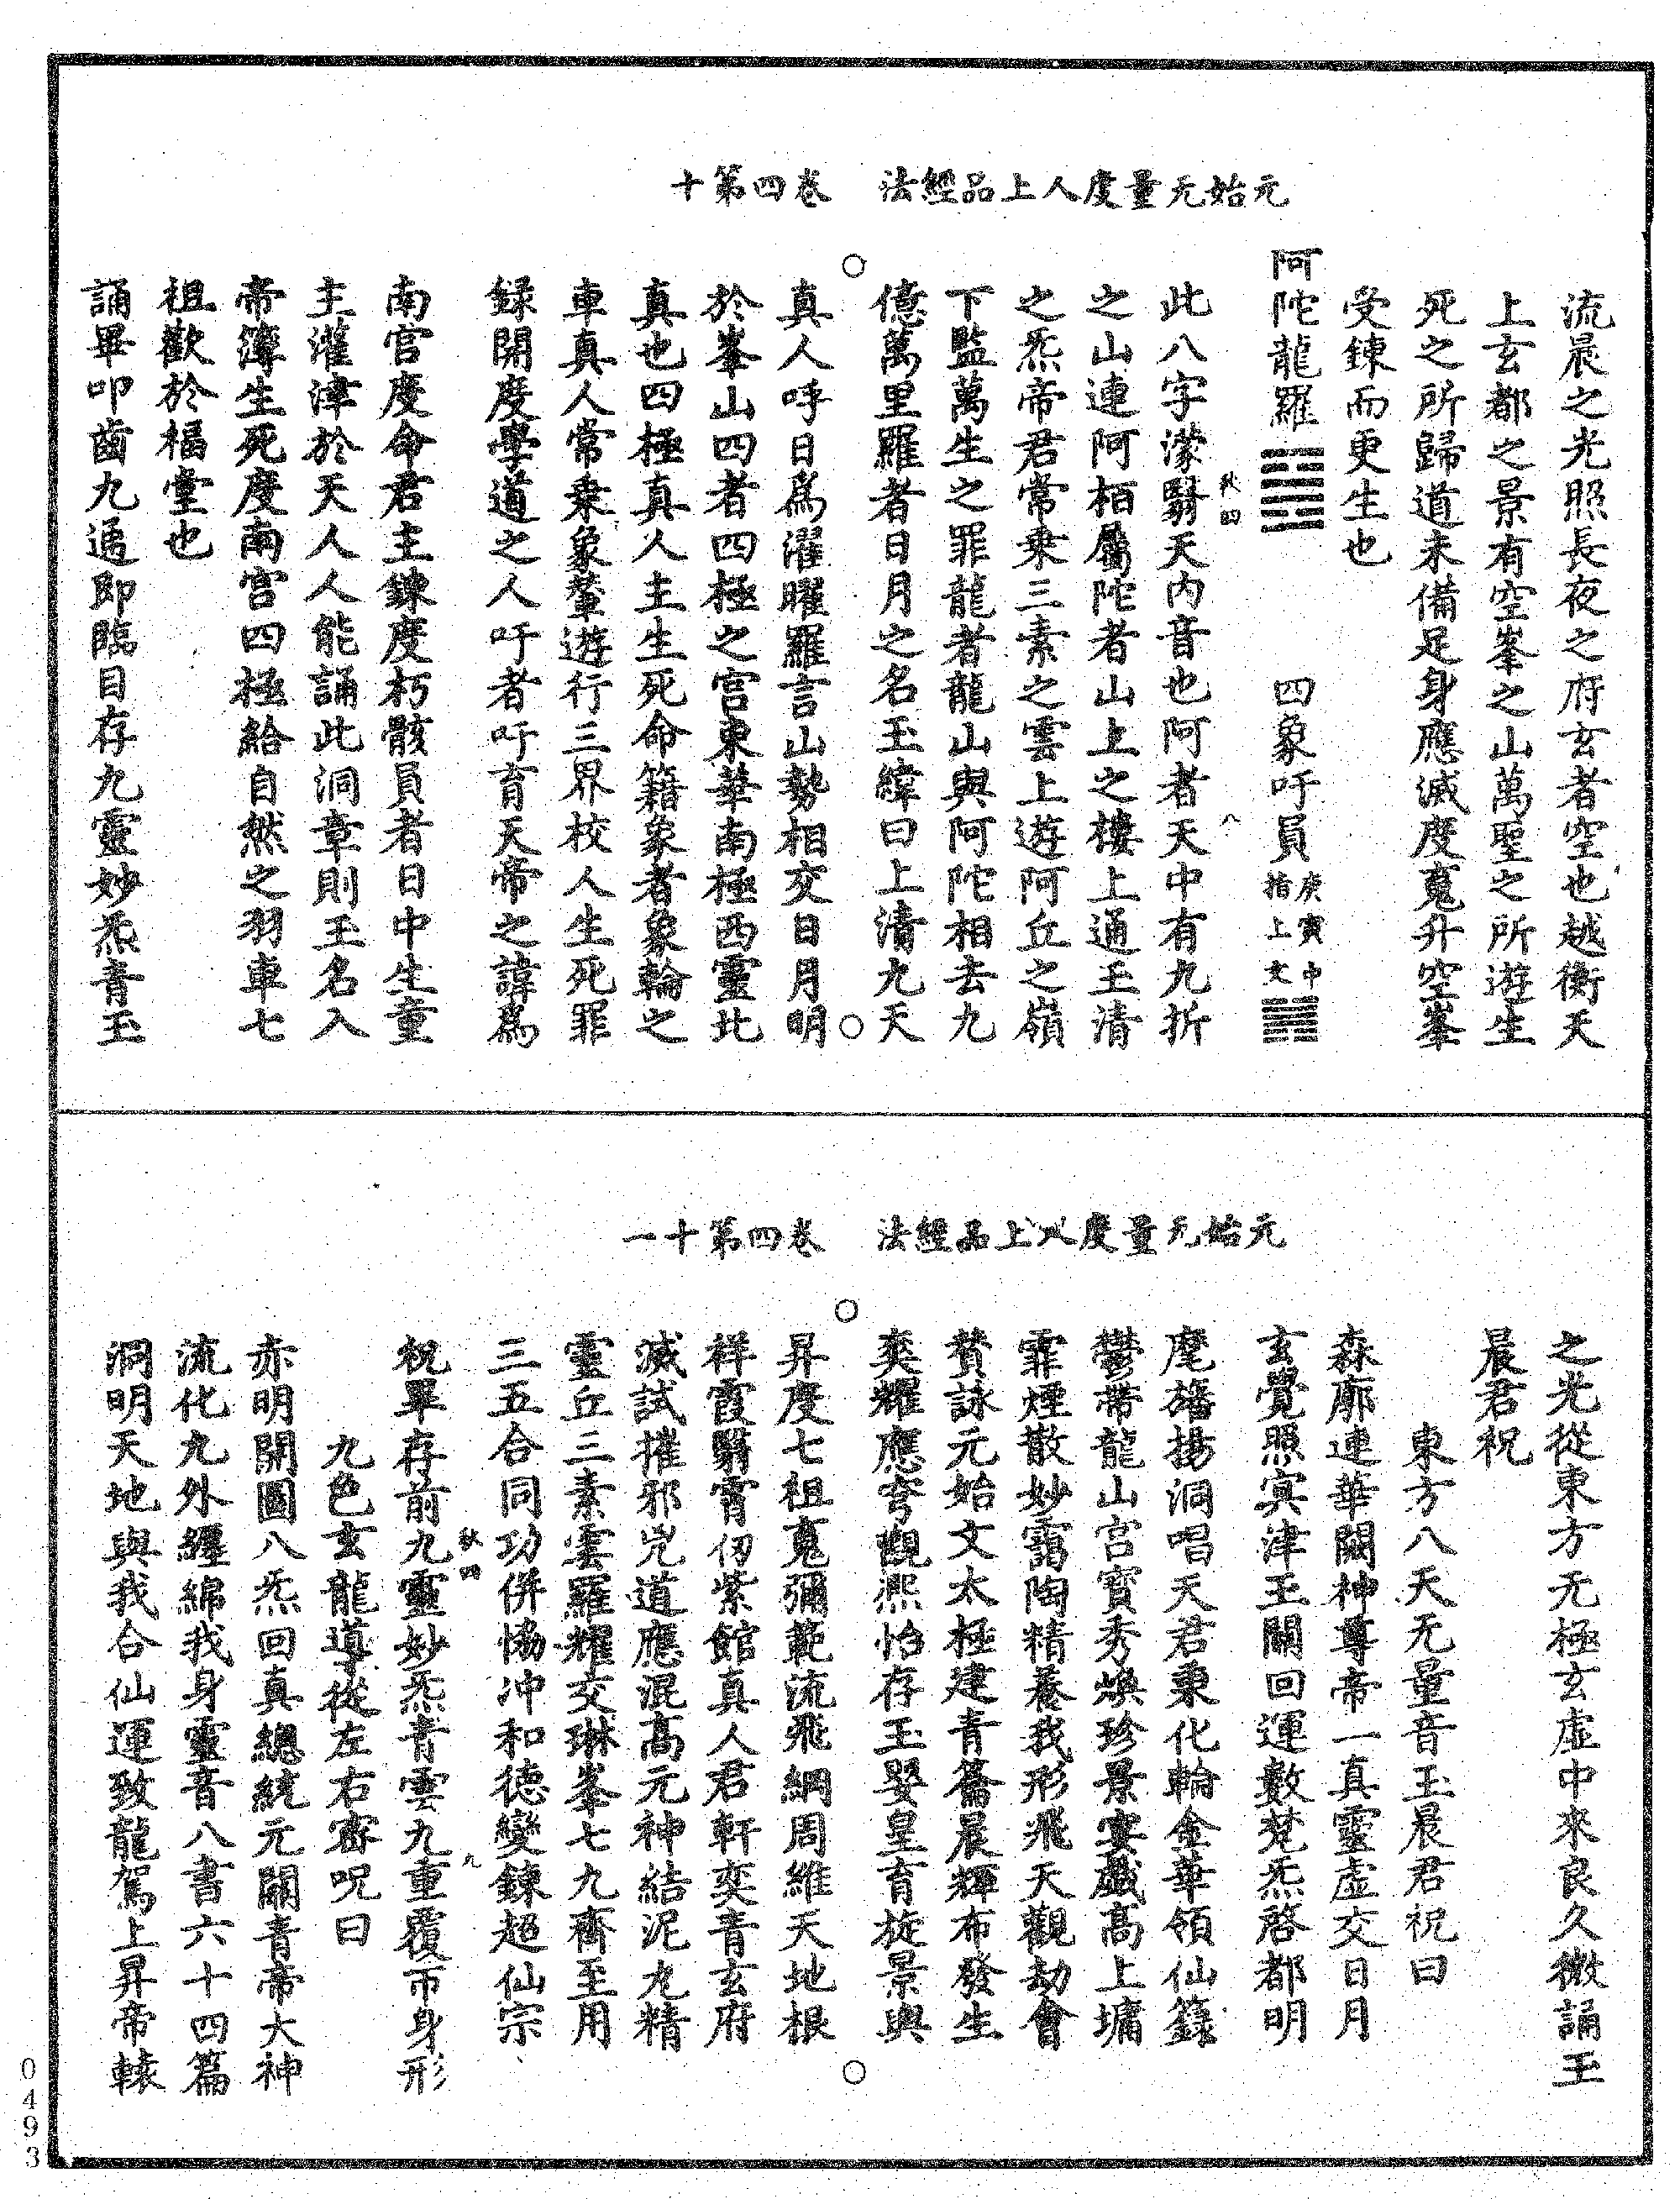 元始无量度人上品經法　卷四第十
流晨之光照長夜之府玄者空也越衡天
上玄都之景有空峯之山萬聖之所遊生
死之所歸道未備足身應滅度䰟升空峯
受鍊而更生也
阿陀龍羅　四象吁員庚寅中指上文
此八字濛翳天内音也阿者天中有九折
秋四　八
之山連阿栢屬陀者山上之樓上通玉清
之炁帝君常乗三素之雲上遊阿丘之嶺
下監萬生之罪龍者龍山與阿陀相去九
億萬里羅者日月之名玉緯曰上清九天
真人呼日爲濯曜羅言山勢相交日月明
於峯山四者四極之宫東華南極西靈北
真也四極真人主生死命籍象者象輪之
車真人常乗象輦遊行三界校人生死罪
録開度學道之人吁者吁育天帝之諱爲
南宫度命君主鍊度朽骸員者日中生童
主灌津於天人人能誦此洞章則玉名入
帝簿生死度南宫四極給自然之羽車七
祖歡於福堂也
誦畢叩齒九通即臨目存九靈妙炁青玉
元始无量度人上品經法　卷四第十一
之光從東方无極玄虚中來良久微誦玉
晨君祝
東方八天无量音玉晨君祝曰
森廓連華闕神尊帝一真靈虚交日月
玄覺照冥津玉關回運數梵炁啓都明
麾旛揚洞唱天君東化輪金華領仙籙
鬱帶龍山宫寳秀煥珍景宴戲高上墉
霏煙散妙靄陶精養我形飛天觀劫會
賛詠元始文太極建青篇晨輝布發生
奕耀應穹觀熈怡存玉嬰皇育旋景與
昇度七祖䰟彌範流飛綱周維天地根
祥霞翳霄仞紫館真人君軒奕青玄府
滅試摧邪兇道應混高元神結泥丸精
靈丘三素雲羅耀交琳峯七九齊至用
三五合同功併恊冲和德變鍊超仙宗
秋四　九
祝畢存前九靈妙炁青雲九重覆帀身形
九色玄龍導從左右密呪曰
赤明開圖八炁回真總統元關青帝大神
流化九外纏綿我身靈音八書六十四篇
洞明天地與我合仙運致龍駕上昇帝轅
0493